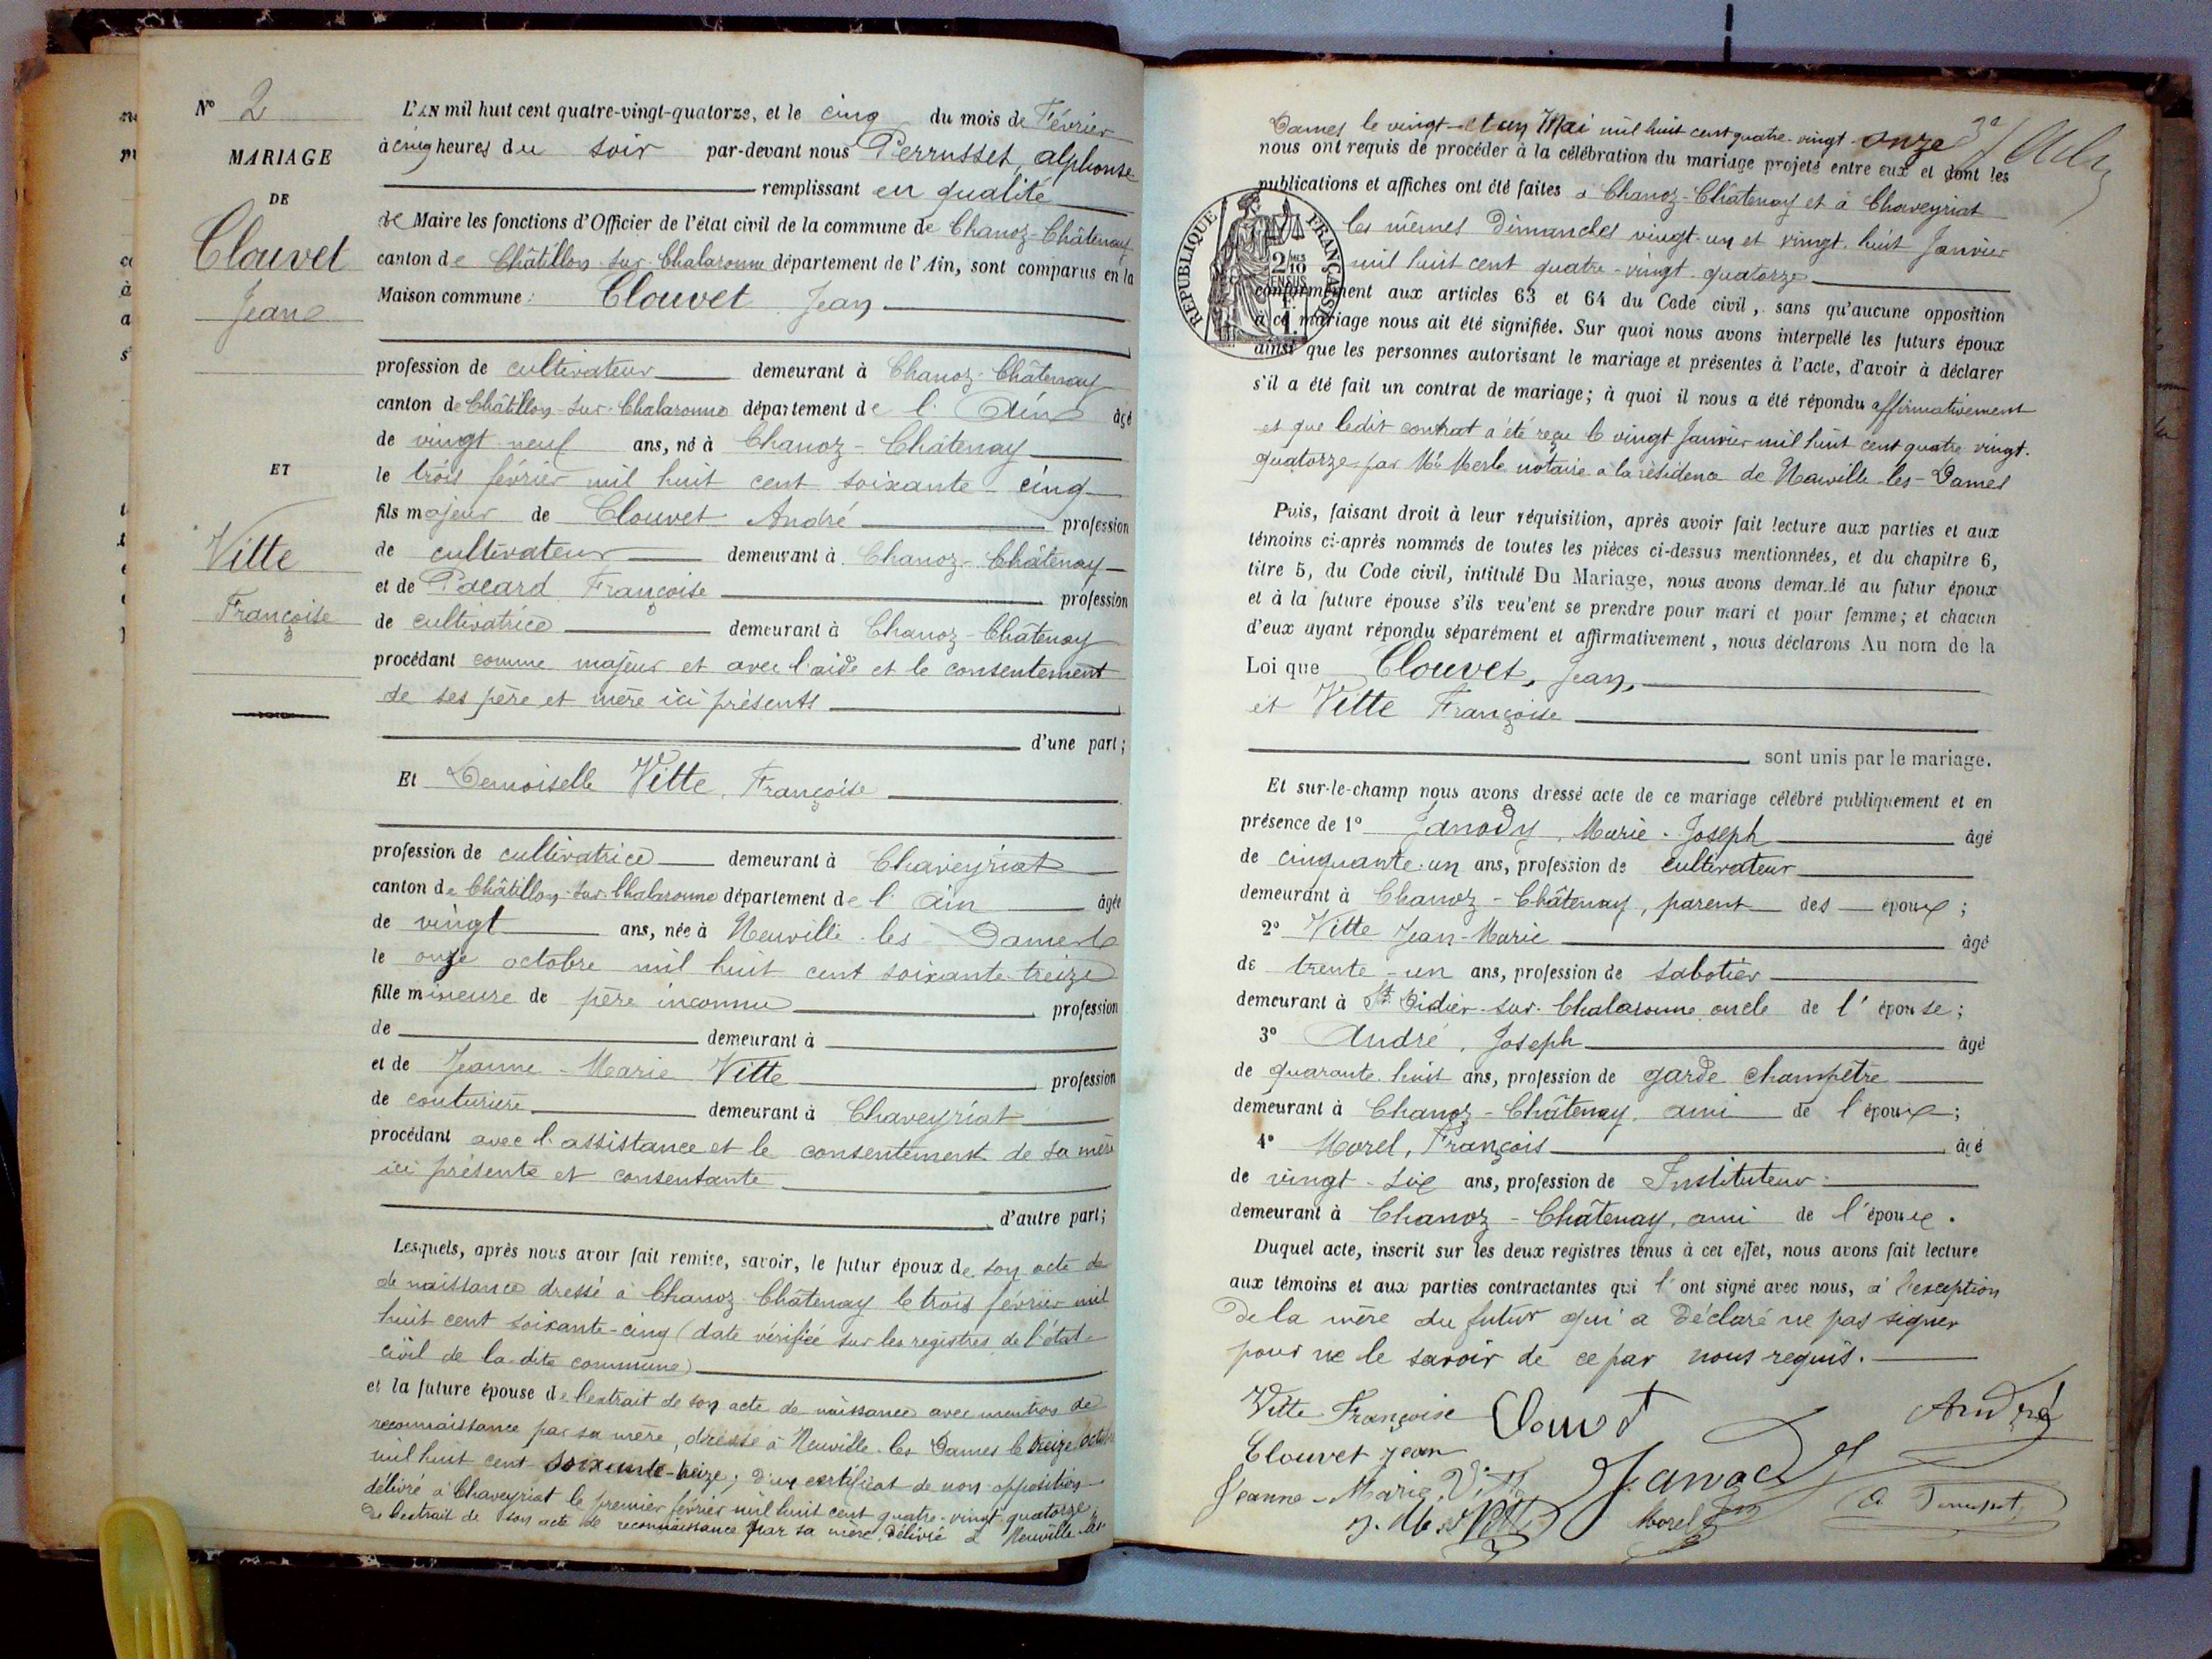 N° 2
MARIAGE
DE
Clouvet
Jean
ET
Vitte
Françoise
L'AN mil huit cent quatre-vingt-quatorze, et le cinq du mois de Février
à cinq heures du soir par-devant nous Perrusset, alphonse
remplissant en qualité
de Maire les fonctions d'Officier de l'état civil de la commune de Chanoz-Châtenay
canton de Châtillon-sur-Chalaronne département de l'Ain, sont comparus en la
Maison commune: Clouvet Jean
profession de cultivateur demeurant à Chanoz-Châtenay
canton de Châtillon-sur-Chalaronne département de l'Ain âgé
de vingt-neuf ans, né à Chanoz-Châtenay
le trois février mil huit cent soixante-cinq
fils majeur de Clouvet André profession
de cultivateur demeurant à Chanoz-Châtenay
et de Pacard Françoise profession
de cultivatrice demeurant à Chanoz-Châtenay
procédant comme majeur et avec l'aide et le consentement
de ses père et mère ici présents
d'une part;
Et Demoiselle Vitte, Françoise
profession de cultivatrice demeurant à Chaveyriat
canton de Châtillon-sur-Chalaronne département de l'Ain âgée
de vingt ans, née à Neuville-les-Dames
le onze octobre mil huit cent soixante-treize
fille mineure de père inconnu profession
de demeurant à
et de Jeanne-Marie Vitte profession
de couturière demeurant à Chaveyriat
procédant avec l'assistance et le consentement de sa mère
ici présente et consentante
d'autre part;
Lesquels, après nous avoir fait remise, savoir, le futur époux de son acte de
de naissance dressé à Chanoz-Châtenay le trois février mil
huit cent soixante-cinq (date vérifiée sur les registres de l'état-
civil de la dite commune)
et la future épouse de l'extrait de son acte de naissance avec mention de
reconnaissance par sa mère, dressé à Neuville-les-Dames le treize octobre
mil huit cent soixante-treize; d'un certificat de non opposition
délivré à Chaveyriat le premier février mil huit cent quatre-vingt-quatorze;
de l'extrait de son acte de reconnaissance par sa mère délivré à Neuville-les-
Dames le vingt-et un Mai mil huit cent quatre-vingt-onze
nous ont requis de procéder à la célébration du mariage projeté entre eux et dont les
publications et affiches ont été faites à Chanoz-Châtenay et à Chaveyriat
les mêmes Dimanches vingt-un et vingt-huit Janvier
mil huit cent quatre-vingt-quatorze
RÉPUBLIQUE FRANÇAISE
2/10
EN SUS
conformément aux articles 63 et 64 du Code civil, sans qu'aucune opposition
à ce mariage nous ait été signifiée. Sur quoi nous avons interpellé les futurs époux
ainsi que les personnes autorisant le mariage et présentes à l'acte, d'avoir à déclarer
s'il a été fait un contrat de mariage; à quoi il nous a été répondu affirmativement
et que ledit contrat a été reçu le vingt Janvier mil huit cent quatre vingt-
quatorze par Me Merle notaire à la résidence de Neuville-les-Dames
Puis, faisant droit à leur réquisition, après avoir fait lecture aux parties et aux
témoins ci-après nommés de toutes les pièces ci-dessus mentionnées, et du chapitre 6,
titre 5, du Code civil, intitulé Du Mariage, nous avons demandé au futur époux
et à la future épouse s'ils veulent se prendre pour mari et pour femme; et chacun
d'eux ayant répondu séparément et affirmativement, nous déclarons Au nom de la
Loi que Clouvet, Jean,
et Vitte Françoise
sont unis par le mariage.
Et sur-le-champ nous avons dressé acte de ce mariage célébré publiquement et en
présence de 1° Janody, Marie-Joseph âgé
de cinquante-un ans, profession de cultivateur
demeurant à Chanoz-Châtenay, parent des époux;
2° Vitte Jean-Marie âgé
de trente-un ans, profession de sabotier
demeurant à St Didier-sur-Chalaronne oncle de l'épouse;
3° André, Joseph âgé
de quarante-huit ans, profession de garde champêtre
demeurant à Chanoz-Châtenay, ami de l'époux;
4° Morel, François âgé
de vingt-six ans, profession de Instituteur
demeurant à Chanoz-Châtenay, ami de l'époux.
Duquel acte, inscrit sur les deux registres tenus à cet effet, nous avons fait lecture
aux témoins et aux parties contractantes qui l'ont signé avec nous, à l'exception
de la mère du futur qui a déclaré ne pas signer
pour ne le savoir de ce par nous requis.
Vitte Françoise
André
Clouvet Jean
Jeanne-Marie Vitte
Morel